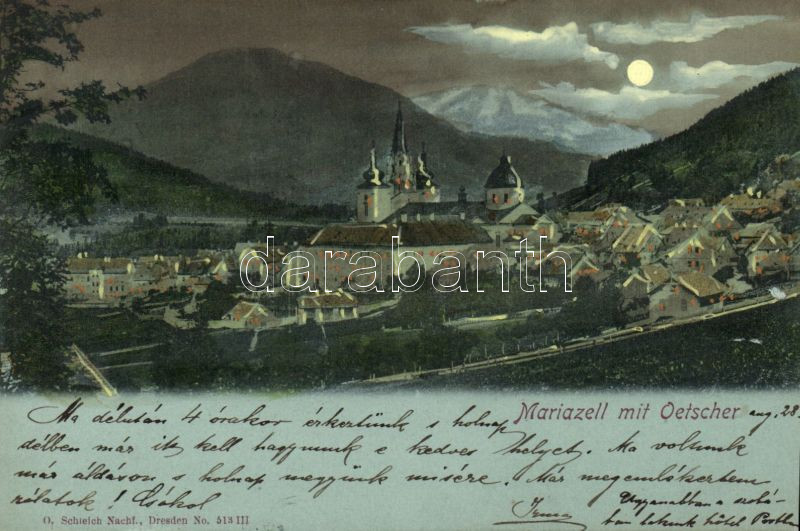 darabanth
Mariazell mit Oetscher
aug. 28.
Ma délután 4 órakor érkertünk s holnap
délben már itt kell hagynunk e kedves helyet. Ma voltunk
már áldáson s holnap megyünk misére. Már megemlékertem
rólatok! Csókol
Irma
Ugyanabban a szobá-
ban lakunk hôtel Post
O. Schleich Nachf., Dresden No. 513 III